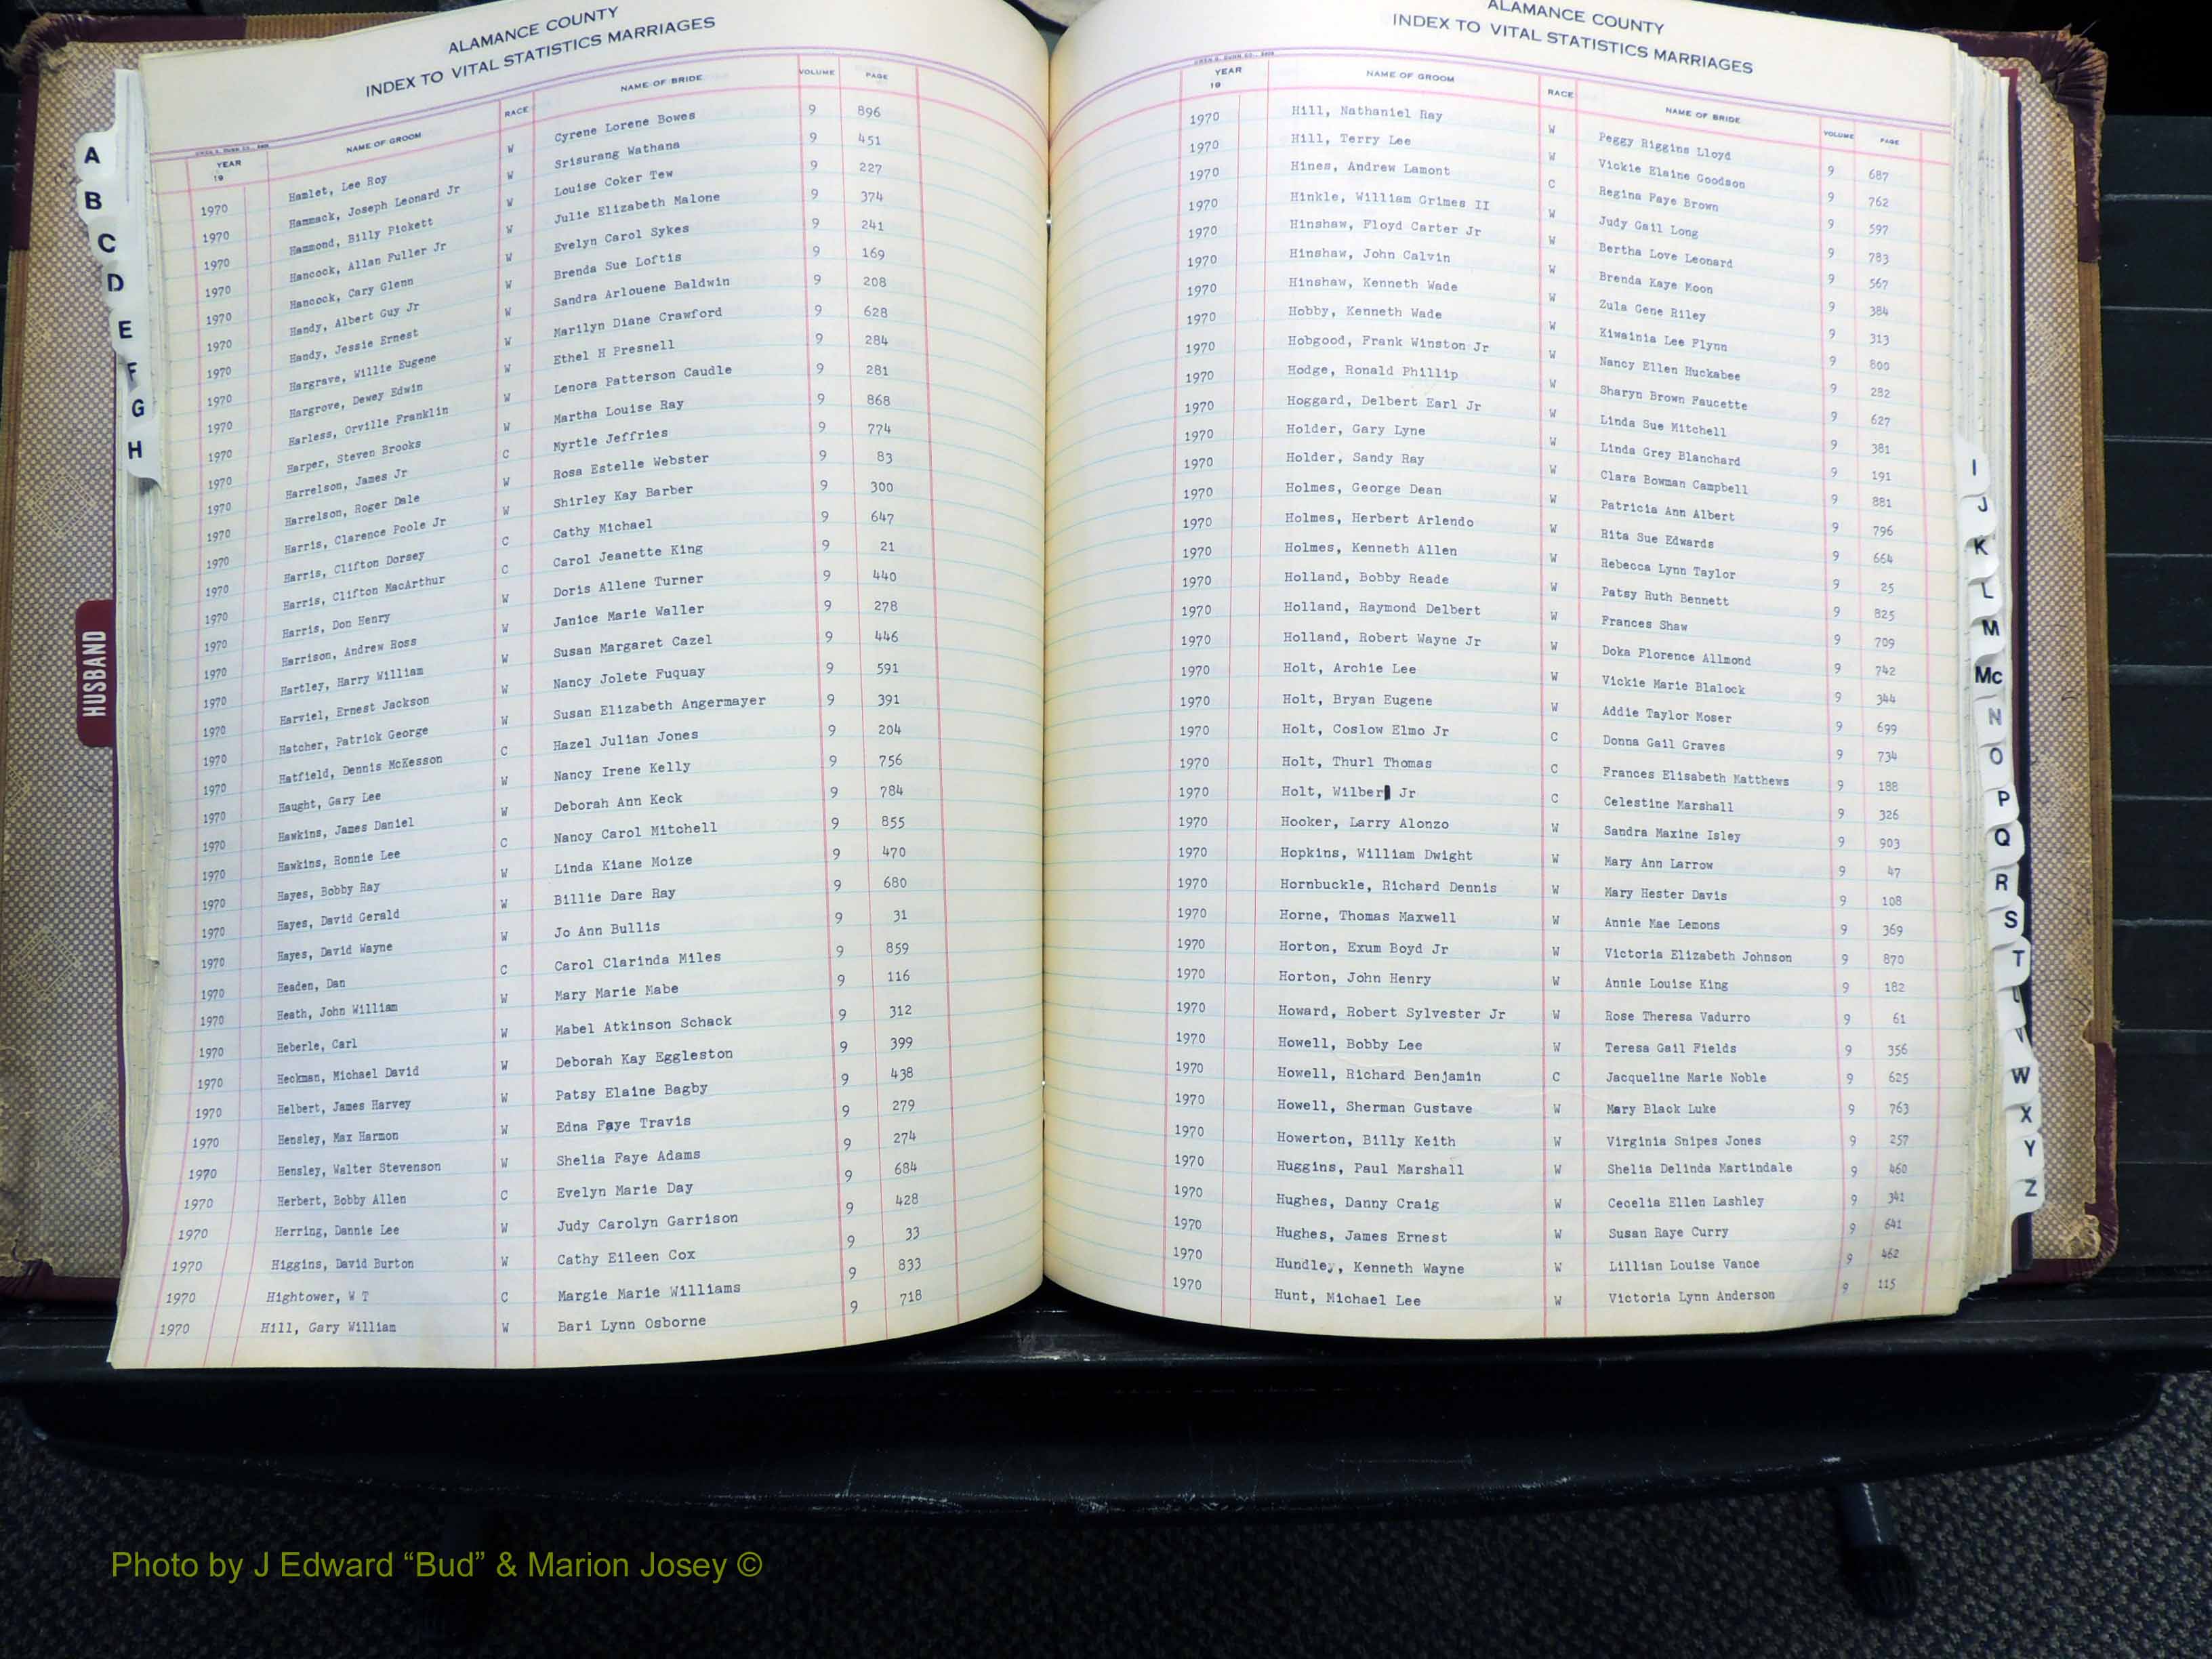 ALAMANCE COUNTY
INDEX TO VITAL STATISTICS MARRIAGES
YEAR 19 NAME OF GROOM RACE NAME OF BRIDE VOLUME PAGE
1970 Hamlet, Lee Roy W Cyrene Lorene Bowes 9 896
1970 Hammack, Joseph Leonard Jr W Srisurang Wathana 9 451
1970 Hammond, Billy Pickett W Louise Coker Tew 9 227
1970 Hancock, Allan Fuller Jr W Julie Elizabeth Malone 9 374
1970 Hancock, Cary Glenn W Evelyn Carol Sykes 9 241
1970 Handy, Albert Guy Jr W Brenda Sue Loftis 9 169
1970 Handy, Jessie Ernest W Sandra Arlouene Baldwin 9 208
1970 Hargrave, Willie Eugene W Marilyn Diane Crawford 9 628
1970 Hargrove, Dewey Edwin W Ethel H Presnell 9 284
1970 Harless, Orville Franklin W Lenora Patterson Caudle 9 281
1970 Harper, Steven Brooks W Martha Louise Ray 9 868
1970 Harrelson, James Jr C Myrtle Jeffries 9 774
1970 Harrelson, Roger Dale W Rosa Estelle Webster 9 83
1970 Harris, Clarence Poole Jr W Shirley Kay Barber 9 300
1970 Harris, Clifton Dorsey C Cathy Michael 9 647
1970 Harris, Clifton MacArthur C Carol Jeanette King 9 21
1970 Harris, Don Henry W Doris Allene Turner 9 440
1970 Harrison, Andrew Ross W Janice Marie Waller 9 278
1970 Hartley, Harry William W Susan Margaret Cazel 9 446
1970 Harviel, Ernest Jackson W Nancy Jolete Fuquay 9 591
1970 Hatcher, Patrick George W Susan Elizabeth Angermayer 9 391
1970 Hatfield, Dennis McKesson C Hazel Julian Jones 9 204
1970 Haught, Gary Lee W Nancy Irene Kelly 9 756
1970 Hawkins, James Daniel W Deborah Ann Keck 9 784
1970 Hawkins, Ronnie Lee C Nancy Carol Mitchell 9 855
1970 Hayes, Bobby Ray W Linda Kiane Moize 9 470
1970 Hayes, David Gerald W Billie Dare Ray 9 680
1970 Hayes, David Wayne W Jo Ann Bullis 9 31
1970 Headen, Dan C Carol Clarinda Miles 9 859
1970 Heath, John William W Mary Marie Mabe 9 116
1970 Heberle, Carl W Mabel Atkinson Schack 9 312
1970 Heckman, Michael David W Deborah Kay Eggleston 9 399
1970 Helbert, James Harvey W Patsy Elaine Bagby 9 438
1970 Hensley, Max Harmon W Edna Faye Travis 9 279
1970 Hensley, Walter Stevenson W Shelia Faye Adams 9 274
1970 Herbert, Bobby Allen C Evelyn Marie Day 9 684
1970 Herring, Dannie Lee W Judy Carolyn Garrison 9 428
1970 Higgins, David Burton W Cathy Eileen Cox 9 33
1970 Hightower, W T C Margie Marie Williams 9 833
1970 Hill, Gary William W Bari Lynn Osborne 9 718
A
B
C
D
E
F
G
H
HUSBAND
ALAMANCE COUNTY
INDEX TO VITAL STATISTICS MARRIAGES
YEAR 19 NAME OF GROOM RACE NAME OF BRIDE VOLUME PAGE
1970 Hill, Nathaniel Ray W Peggy Riggins Lloyd 9 687
1970 Hill, Terry Lee W Vickie Elaine Goodson 9 762
1970 Hines, Andrew Lamont C Regina Faye Brown 9 597
1970 Hinkle, William Grimes II W Judy Gail Long 9 783
1970 Hinshaw, Floyd Carter Jr W Bertha Love Leonard 9 567
1970 Hinshaw, John Calvin W Brenda Kaye Moon 9 384
1970 Hinshaw, Kenneth Wade W Zula Gene Riley 9 313
1970 Hobby, Kenneth Wade W Kiwainia Lee Flynn 9 800
1970 Hobgood, Frank Winston Jr W Nancy Ellen Huckabee 9 282
1970 Hodge, Ronald Phillip W Sharyn Brown Faucette 9 627
1970 Hoggard, Delbert Earl Jr W Linda Sue Mitchell 9 381
1970 Holder, Gary Lyne W Linda Grey Blanchard 9 191
1970 Holder, Sandy Ray W Clara Bowman Campbell 9 881
1970 Holmes, George Dean W Patricia Ann Albert 9 796
1970 Holmes, Herbert Arlendo W Rita Sue Edwards 9 664
1970 Holmes, Kenneth Allen W Rebecca Lynn Taylor 9 25
1970 Holland, Bobby Reade W Patsy Ruth Bennett 9 825
1970 Holland, Raymond Delbert W Frances Shaw 9 709
1970 Holland, Robert Wayne Jr W Doka Florence Allmond 9 742
1970 Holt, Archie Lee W Vickie Marie Blalock 9 344
1970 Holt, Bryan Eugene W Addie Taylor Moser 9 699
1970 Holt, Coslow Elmo Jr C Donna Gail Graves 9 734
1970 Holt, Thurl Thomas C Frances Elisabeth Matthews 9 188
1970 Holt, Wilber Jr C Celestine Marshall 9 326
1970 Hooker, Larry Alonzo W Sandra Maxine Isley 9 903
1970 Hopkins, William Dwight W Mary Ann Larrow 9 47
1970 Hornbuckle, Richard Dennis W Mary Hester Davis 9 108
1970 Horne, Thomas Maxwell W Annie Mae Lemons 9 369
1970 Horton, Exum Boyd Jr W Victoria Elizabeth Johnson 9 870
1970 Horton, John Henry W Annie Louise King 9 182
1970 Howard, Robert Sylvester Jr W Rose Theresa Vadurro 9 61
1970 Howell, Bobby Lee W Teresa Gail Fields 9 356
1970 Howell, Richard Benjamin C Jacqueline Marie Noble 9 625
1970 Howell, Sherman Gustave W Mary Black Luke 9 763
1970 Howerton, Billy Keith W Virginia Snipes Jones 9 257
1970 Huggins, Paul Marshall W Shelia Delinda Martindale 9 460
1970 Hughes, Danny Craig W Cecelia Ellen Lashley 9 341
1970 Hughes, James Ernest W Susan Raye Curry 9 641
1970 Hundley, Kenneth Wayne W Lillian Louise Vance 9 462
1970 Hunt, Michael Lee W Victoria Lynn Anderson 9 115
I
J
K
L
M
Mc
N
O
P
Q
R
S
T
U
V
W
X
Y
Z
Photo by J Edward “Bud” & Marion Josey ©